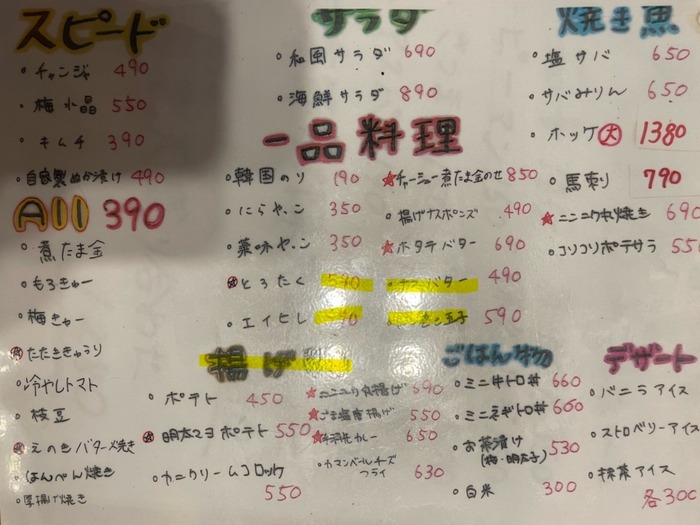 スピード
・チャンジャ 490
・梅水晶 550
・キムチ 390
・自家製ぬか漬け 490
All 390
・煮たま金
・もろきゅー
・梅きゅー
・たたききゅうり
・冷やしトマト
・枝豆
・えのきバター焼き
・はんぺん焼き
・厚揚げ焼き
サラダ
・和風サラダ 690
・海鮮サラダ 890
一品料理
・韓国のり 190
・にらやっこ 350
・薬味やっこ 350
・とろたく
・エイヒレ
★チャーシュー煮たま金のせ 850
・揚げナスポンズ 490
★ホタテバター 690
バター 490
玉子 590
揚げ
・ポテト 450
・明太マヨポテト 550
・カニクリームコロッケ 550
★ニンニク丸揚げ 690
550
カレー 650
・カマンベールチーズフライ 630
焼き魚
・塩サバ 650
・サバみりん 650
・ホッケ大 1380
・馬刺し 790
★ニンニク丸焼き 690
・コリコリポテサラ 55
ごはん物
・ミニ牛トロ丼 660
・ミニネギトロ丼 660
・お茶漬け(梅・明太子) 530
・白米 300
デザート
・バニラアイス
・ストロベリーアイス
・抹茶アイス
各300